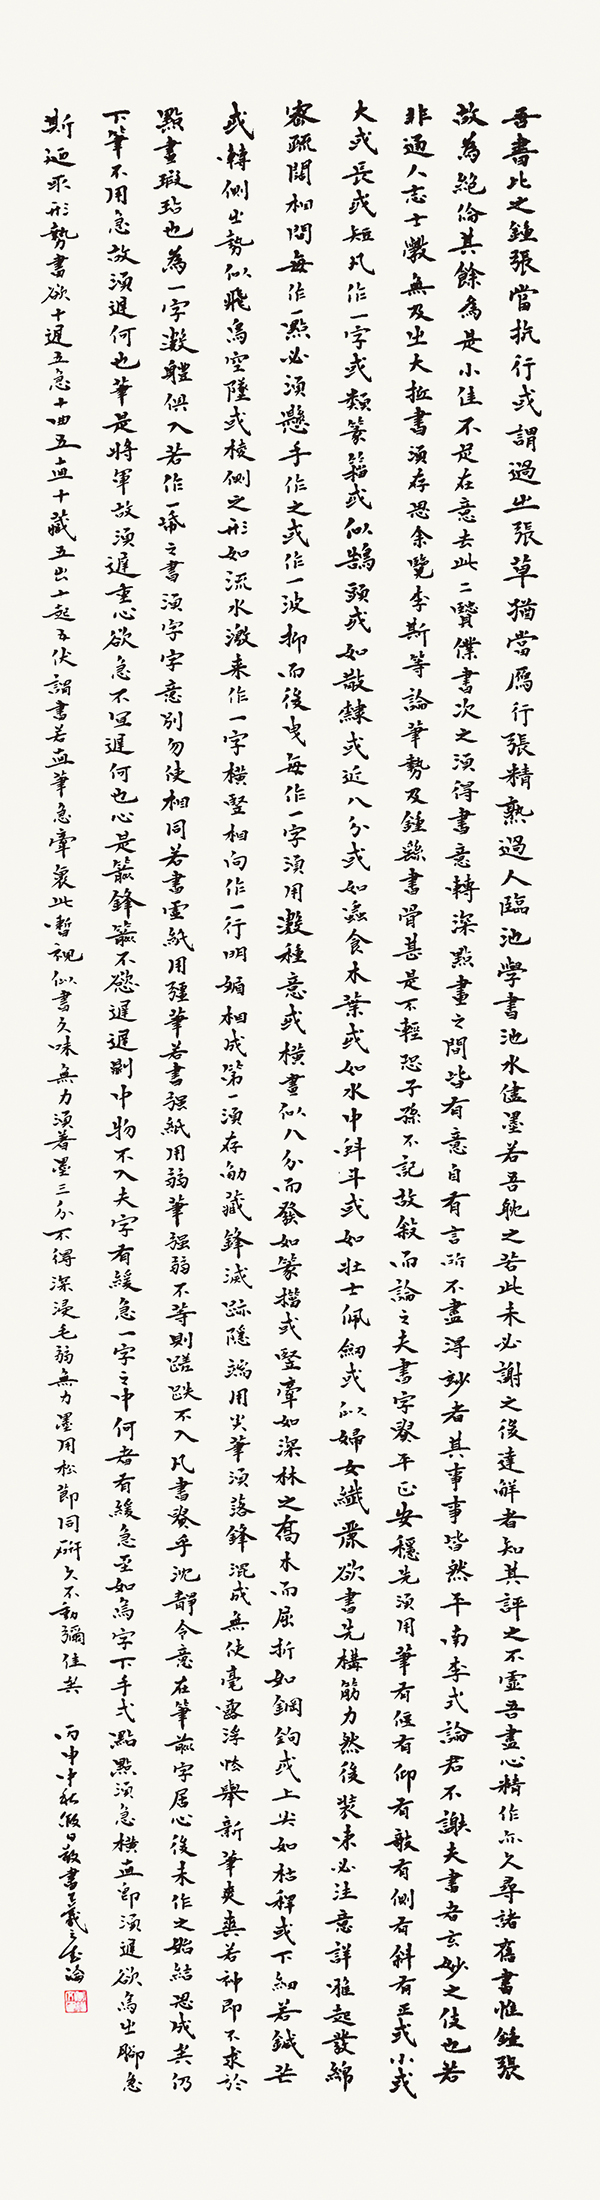 吾書比之鍾張當抗行或謂過之張草猶當雁行張精熟過人臨池學書池水盡墨若吾耽之若此未必謝之後達解者知其評之不虛吾盡心精作亦久尋諸舊書惟鍾張
故為絕倫其餘為是小佳不足在意去此二賢僕書次之須得書意轉深點畫之間皆有意自有言所不盡得妙者其事事皆然平南李式論君不謝夫書者玄妙之伎也若
非通人志士學無及之大抵書須存思余覽李斯等論筆勢及鍾繇書骨甚是不輕恐子孫不記故敘而論之夫書字貴平正安穩先須用筆有偃有仰有欹有側有斜有正或小或
大或長或短凡作一字或類篆籀或似鵠頭或如散隸或近八分或如蟲食木葉或如水中科斗或如壯士佩劍或似婦女纖麗欲書先構筋力然後裝束必注意詳雅起發綿
密疏闊相間每作一點必須懸手作之或作一波抑而後曳每作一字須用數種意或橫畫似八分而發如篆籀或豎牽如深林之喬木而屈折如鋼鉤或上尖如枯稈或下細若鍼芒
或轉側之勢似飛鳥空墜或棱側之形如流水激來作一字橫豎相向作一行明媚相成第一須存筋藏鋒滅跡隱端用尖筆須落鋒混成無使毫露浮怯舉新筆爽爽若神即不求於
點畫瑕玷也為一字數體俱入若作一紙之書須字字意別勿使相同若書虛紙用强筆若書强紙用弱筆强弱不等則蹉跌不入凡書貴乎沈靜令意在筆前字居心後未作之始結思成矣仍
下筆不用急故須遲何也筆是將軍故須遲重心欲急不宜遲何也心是箭鋒箭不欲遲遲則中物不入夫字有緩急一字之中何者有緩急至如烏字下手弍點點須急橫直即須遲欲烏之腳急
斯迺取形勢書欲十遲五急十曲五直十藏五出十起五伏謂書若直筆急牽裹此暫視似書久味無力須著墨三分不得深浸毛弱無力墨用松節同研久不動彌佳矣 丙申中秋假日敬書王羲之書論